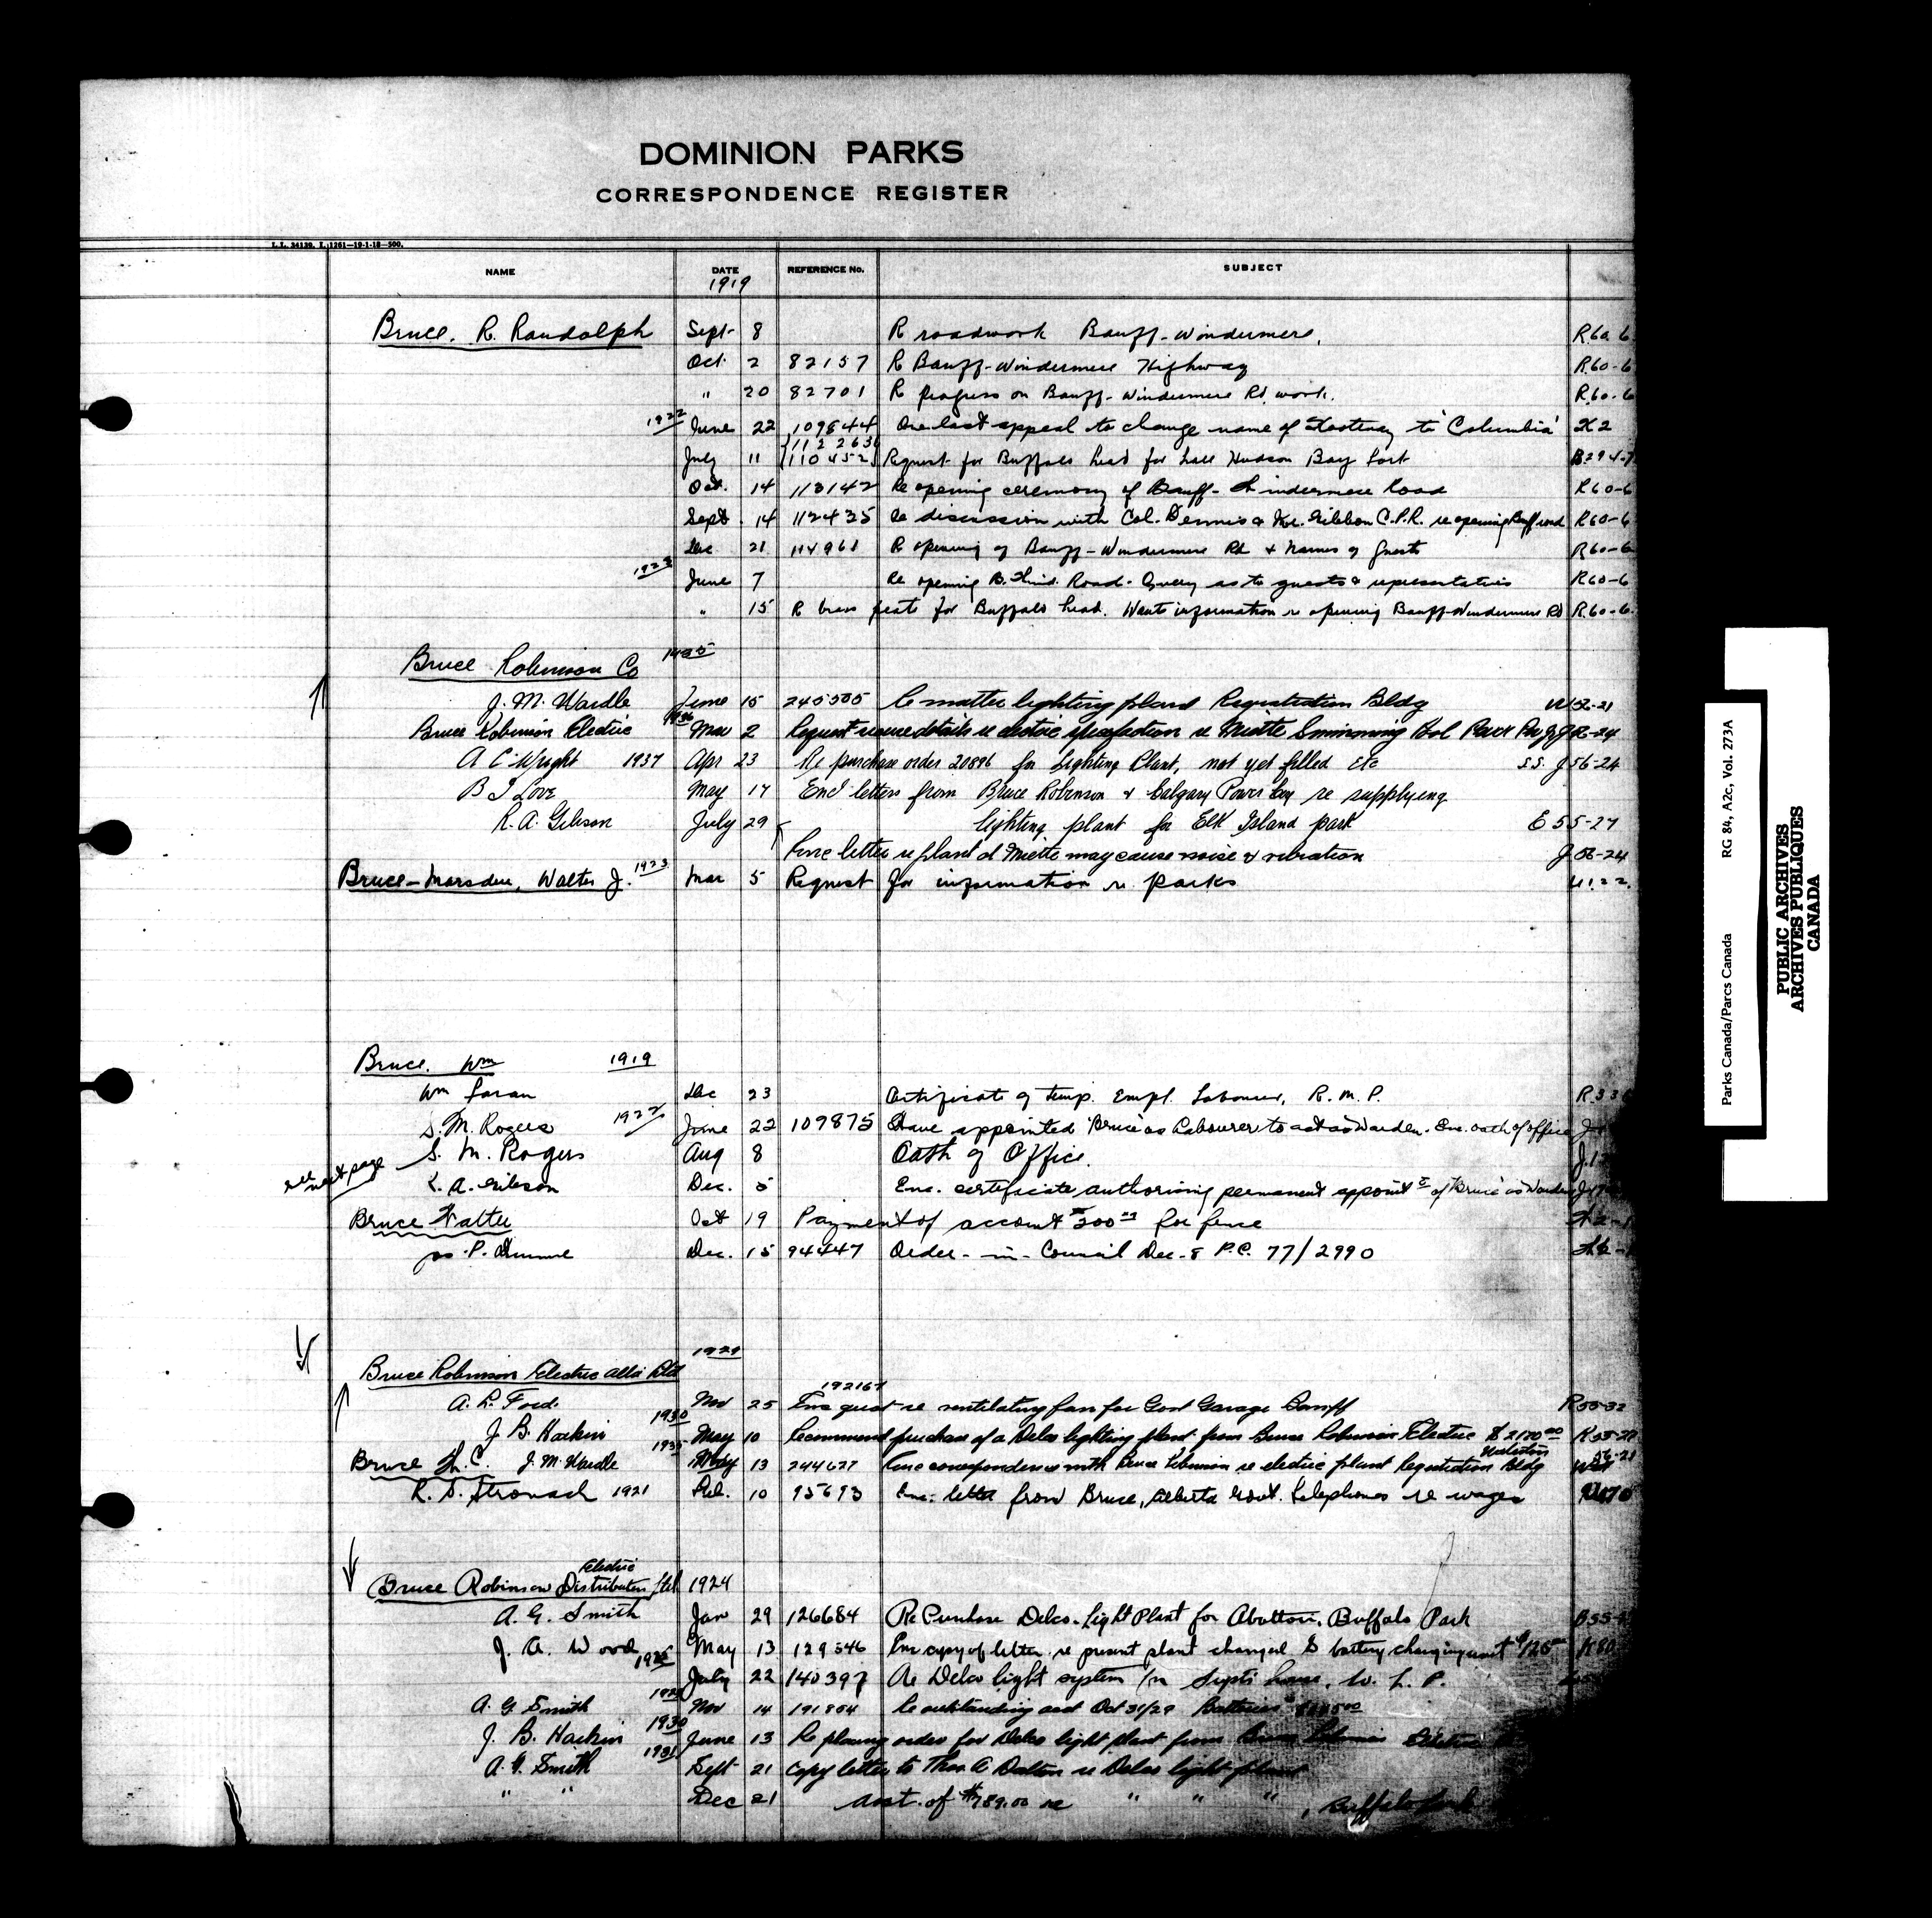 DOMINION PARKS
CORRESPONDENCE REGISTER
L.L. 34139. I. 1261—19-1-18—500.
NAME DATE REFERENCE No. SUBJECT
1919
Bruce. R. Randolph Sept 8 R roadwork Banff-Windermere. R.60-6
Oct. 2 82157 R Banff-Windermere Highway R60-6
" 20 82701 R progress on Banff-Windermere Rd. work. R.60-6
1922 June 22 109844 One last appeal to change name of Kootenay to 'Columbia' K2
112263
July 11 110452 Request for Buffalo head for hall Hudson Bay Fort B294-7
Oct. 14 113142 Re opening ceremony of Banff-Windermere Road R60-6
Sept. 14 112435 Re discussion with Col. Dennis & Mr. Gibbon C.P.R. re opening Banff road R60-6
Dec 21 114961 R opening of Banff-Windermere Rd & Names of Guests R60-6
1923 June 7 Re opening B. Wind. Road. Query as to guests & representatives R60-6
" 15 R brass plate for Buffalo head. Wants information re opening Banff-Windermere Rd R.60-6
Bruce Robinson Co 1935
J. M. Wardle June 15 245505 Re matter lighting plant Registration Bldg 56-21
Bruce Robinson Electric 1936 Mar 2 Request more details re electric specification re Miette Swimming Pool Power 56-24
A C Wright 1937 Apr 23 Re purchase order 20896 for Lighting Plant, not yet filled etc S.S. J56-24
B I Love May 17 Encl letters from Bruce Robinson & Calgary Power Coy re supplying
R. A. Gibson July 29 lighting plant for Elk Island park E55-27
Enc letter re plant at Miette may cause noise & vibration J56-24
Bruce-Marsden, Walter J. 1923 Mar 5 Request for information re. parks U.22.
Bruce. Wm 1919
Wm Dec 23 Certificate of temp. Empl. Labourer, R.M.P.
S. M. Rogers 1922 June 22 109875 Have appointed 'Bruce' as Labourer to act as Warden. Enc. oath of office
S. M. Rogers Aug 8 Oath of Office.
see next page
R. A. Gibson Dec. 5 Enc. certificate authorizing permanent appoint^t of 'Bruce' as Warden
Bruce Walter Oct 19 Payment of account $200.00 for fence
Dec. 15 94447 Order-in-Council Dec-8 P.C. 77/2990
Bruce Robinson Electric Alta Ltd 1929
192167
A. L. Ford. Nov 25 Enc quot re ventilating fan for Govt Garage Banff R55-32
J B. Harkin 1930 May 10 Recommend purchase of a Delco lighting plant from Bruce Robinson Electric $2170.00
Bruce H. C. J. M. Wardle 1935 May 13 244627 Enc correspondence with Bruce Robinson re electric plant registration Bldg 56-21
R. S. Stronach 1921 Feb. 10 95693 Enc. letter from Bruce, Alberta Govt. Telephones re wages
Electric
Bruce Robinson Distributors Ltd 1924
A. G. Smith Jan 29 126684 Re Purchase Delco-Light Plant for Abattoir. Buffalo Park B55-
J. A. Wood May 13 129546 Enc copy of letter re present plant changed to battery charging unit
July 22 140397 Re Delco light system in Supts house, W. L. P.
A. G. Smith Nov 14 191804 Re outstanding acct Oct 31/29 Batteries
J. B. Harkin 1930 June 13 Re placing order for Delco light plant from Bruce Robinson Electric
A. G. Smith 1931 Sept 21 Copy letter to Thos A Dalton re Delco light plant
" " Dec 21 acct. of $789.00 re " " ", Buffalo Park
Parks Canada/Parcs Canada RG 84, A2c, Vol. 273A
PUBLIC ARCHIVES
ARCHIVES PUBLIQUES
CANADA